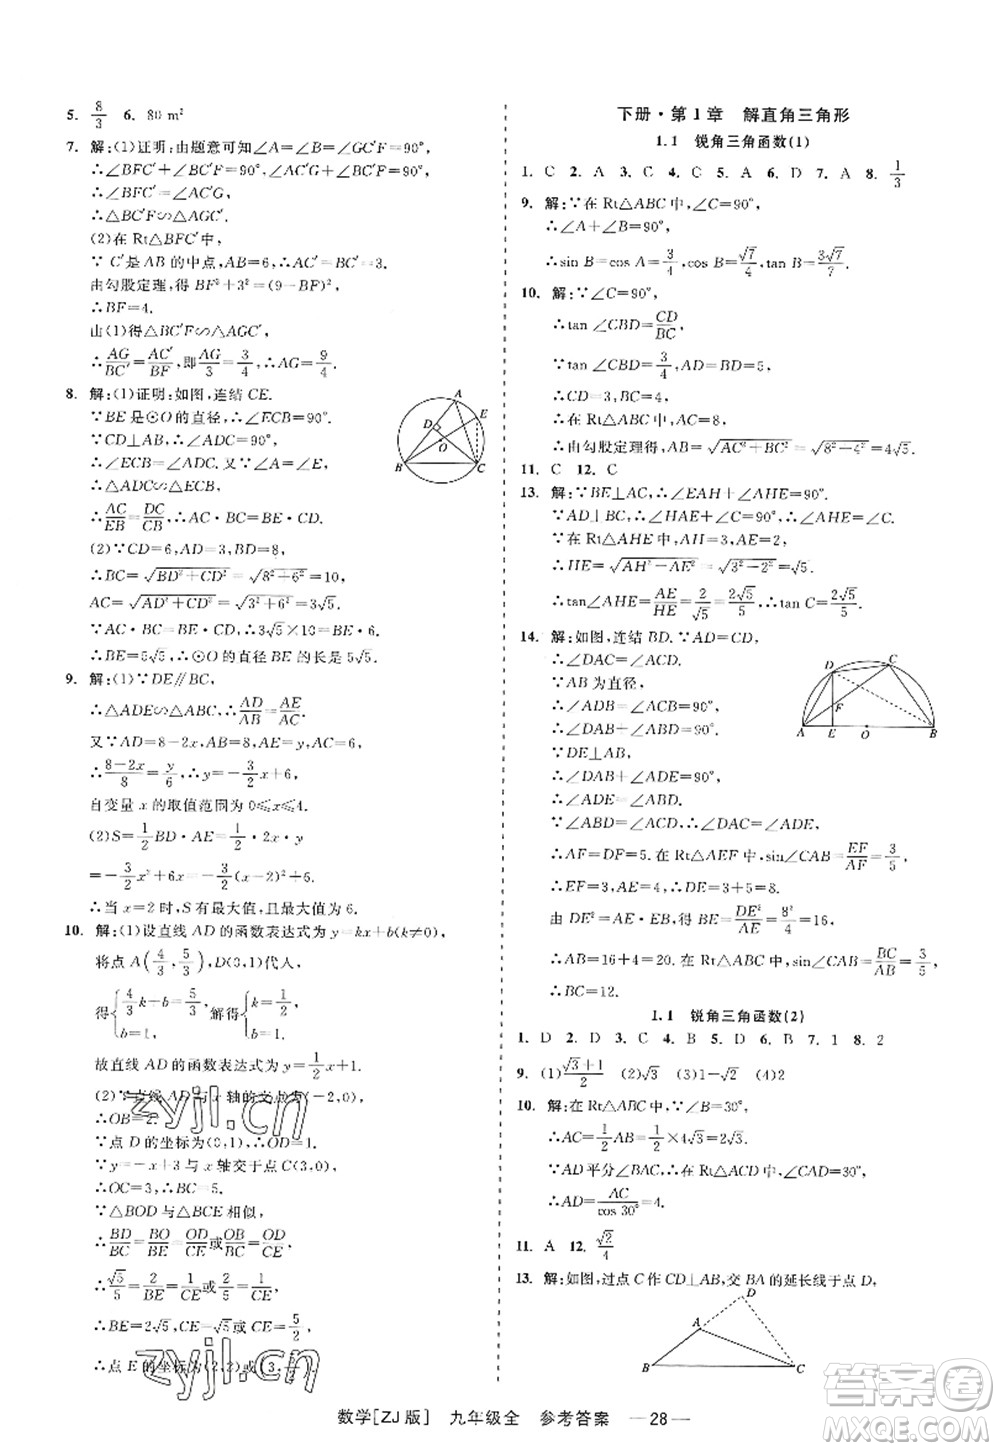 5. 8/3  6. 80 m²
7. 解:(1)证明:由题意可知∠A=∠B=90°,
∴∠BFC′+∠BC′F=90°,
∵∠BFC′=∠AC′G,
∴△BC′F∽△AGC′.
(2)在 Rt△BFC′中,
∵ C′是 AB 的中点,AB=6,∴BC′=3.
由勾股定理,得 BF²+3²=(9-BF)²
∴BF=4.
由(1)得△BC′F∽△AGC′,
∴AG/BC′=AC′/BF,即AG/3=3/4,∴AG=9/4.
8. 解:(1)证明:如图,连结 CE.
∵BE是⊙O的直径,∴∠ECB=90°.
∵CD⊥AB,∴∠ADC=90°,
∴∠ECB=∠ADC.又∵∠A=∠E,
∴△ADC∽△ECB,
∴AC/EB=DC/CB,∴AC·BC=BE·CD.
(2)∵CD=6,AD=3,BD=8,
∴BC=√BD²+CD²=√8²+6²=10,
AC=√AD²+CD²=√3²+6²=3√5.
∵AC·BC=BE·CD,∴3√5×10=BE·6.
∴BE=5√5,∴⊙O 的直径 BE 的长是 5√5.
9. 解:(1)∵DE∥BC,
∴△ADE∽△ABC,∴AD/AB=AE/AC.
又∵AD=8-2x,AB=8,AE=y,AC=6,
∴(8-2x)/8=y/6,∴y=-3/2x+6,
自变量 x 的取值范围为 0≤x≤4.
(2)S=1/2BD·AE=1/2·2x·y
=-3/2x²+6x=-3/2(x-2)²+6,
∴当 x=2 时,S 有最大值,且最大值为 6.
10. 解:(1)设直线 AD 的函数表达式为 y=kx+b(k≠0),
将点 A(4/3,5/3),D(0,1)代入,
得{4/3k+b=5/3, b=1, 解得{k=1/2, b=1.
故直线 AD 的函数表达式为 y=1/2x+1.
(2)∵直线 AD 与 x 轴的交点为(-2,0),
∴OB=2.
∵点 D 的坐标为(0,1),∴OD=1.
∵y=-x+3与 x 轴交于点 C(3,0),
∴OC=3,∴BC=5.
∵△BOD 与△BCE 相似,
∴BD/BC=BO/BE=OD/CE或OB/BC=OD/CE,
∴√5/5=2/BE=1/CE或2/5=1/CE,
∴BE=2√5,CE=√5或 CE=5/2,
∴点 E 的坐标为(2,2)或(3,5/2).
下册·第 1 章 解直角三角形
1.1 锐角三角函数(1)
1. C 2. A 3. C 4. A 5. A 6. D 7. A 8. 1/3
9. 解:∵在 Rt△ABC 中,∠C=90°,
∴∠A+∠B=90°,
∴sin B=cos A=3/4,cos B=√7/4,tan B=3√7/7.
10. 解:∵∠C=90°,
∴tan ∠CBD=CD/BC.
∵tan ∠CBD=3/4,AD=5,BC=4,
∴CD=3,AC=8,
∴在 Rt△ABC 中,∠C=90°,
∴由勾股定理得,AB=√AC²+BC²=√8²+4²=4√5.
11. C 12. C
13. 解:∵BE⊥AC,∴∠EAH+∠AHE=90°.
∵AD⊥BC,∴∠HAE+∠C=90°,∴∠AHE=∠C.
∵在 Rt△AHE 中,AH=3,AE=2,
∴HE=√AH²-AE²=√3²-2²=√5,
∴tan∠AHE=AE/HE=2/√5=2√5/5,∴tan C=2√5/5.
14. 解:如图,连结 BD.∵AD=CD,
∴∠DAC=∠ACD.
∵AB 为直径,
∴∠ADB=90°,
∴∠ACB=90°.
∵DE⊥AB,
∴∠DAB+∠ADE=90°.
∵∠DAB+∠ABD=90°,
∴∠ABD=∠ACD,∴∠DAC=∠ADE,
∴AF=DF=5.在 Rt△AEF 中,sin∠CAB=EF/AF=3/5,
∴EF=3,AE=4,∴DE=3+5=8.
由 DE²=AE·EB,得 BE=DE²/AE=8²/4=16,
∴AB=16+4=20.在 Rt△ABC 中,sin ∠CAB=BC/AB=3/5,
∴BC=12.
1.1 锐角三角函数(2)
1. D 2. D 3. C 4. B 5. D 6. B 7. 1 8. 2
9. (1)(√3+1)/2 (2)√3 (3)1-√2 (4)2
10. 解:∵在 Rt△ABC 中,∠C=90°,∠B=30°,
∴AC=1/2AB=1/2×4√3=2√3.
∵AD平分∠BAC,∴在 Rt△ACD 中,∠CAD=30°,
∴AD=AC/cos 30°=4.
11. A 12. √2/4
13. 解:如图,过点 C 作 CD⊥AB,交 BA 的延长线于点 D,
数学[ZJ版] 九年级全 参考答案 —28—
zyjl.cn
zyjl.cn
作业精灵